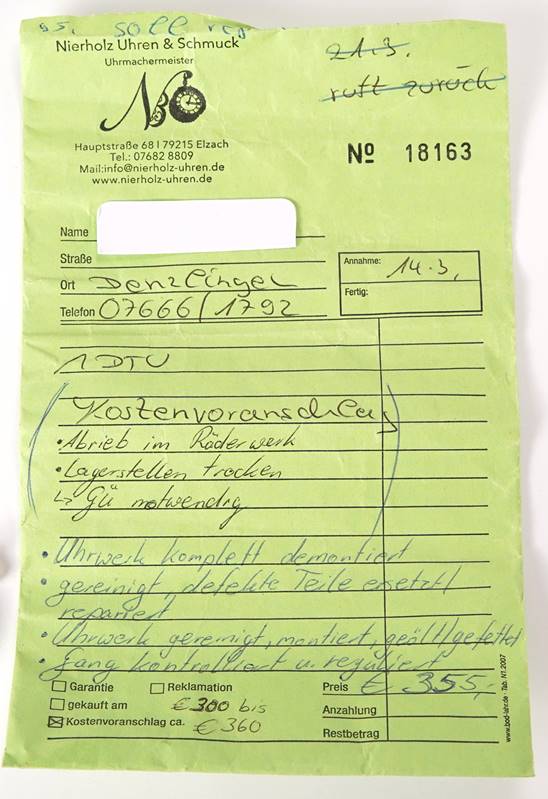 soll
Nierholz Uhren & Schmuck
Uhrmachermeister
Hauptstraße 68 | 79215 Elzach
Tel.: 07682 8809
Mail:info@nierholz-uhren.de
www.nierholz-uhren.de
21.3.
ruft zurück
Nº 18163
Name
Straße
Ort Denzlingen
Telefon 07666/1792
Annahme: 14.3.
Fertig:
1 DTU
Kostenvoranschlag
• Abrieb im Räderwerk
• Lagerstellen trocken
↳ GÜ notwendig
• Uhrwerk komplett demontiert
• gereinigt, defekte Teile ersetzt/
repariert
• Uhrwerk gereinigt, montiert, geölt/gefettet
• Gang kontrolliert u. reguliert
Garantie
Reklamation
gekauft am
Kostenvoranschlag ca.
€ 300 bis
€ 360
Preis € 355,-
Anzahlung
Restbetrag
www.bod-lahr.de · Tab. N1.2007